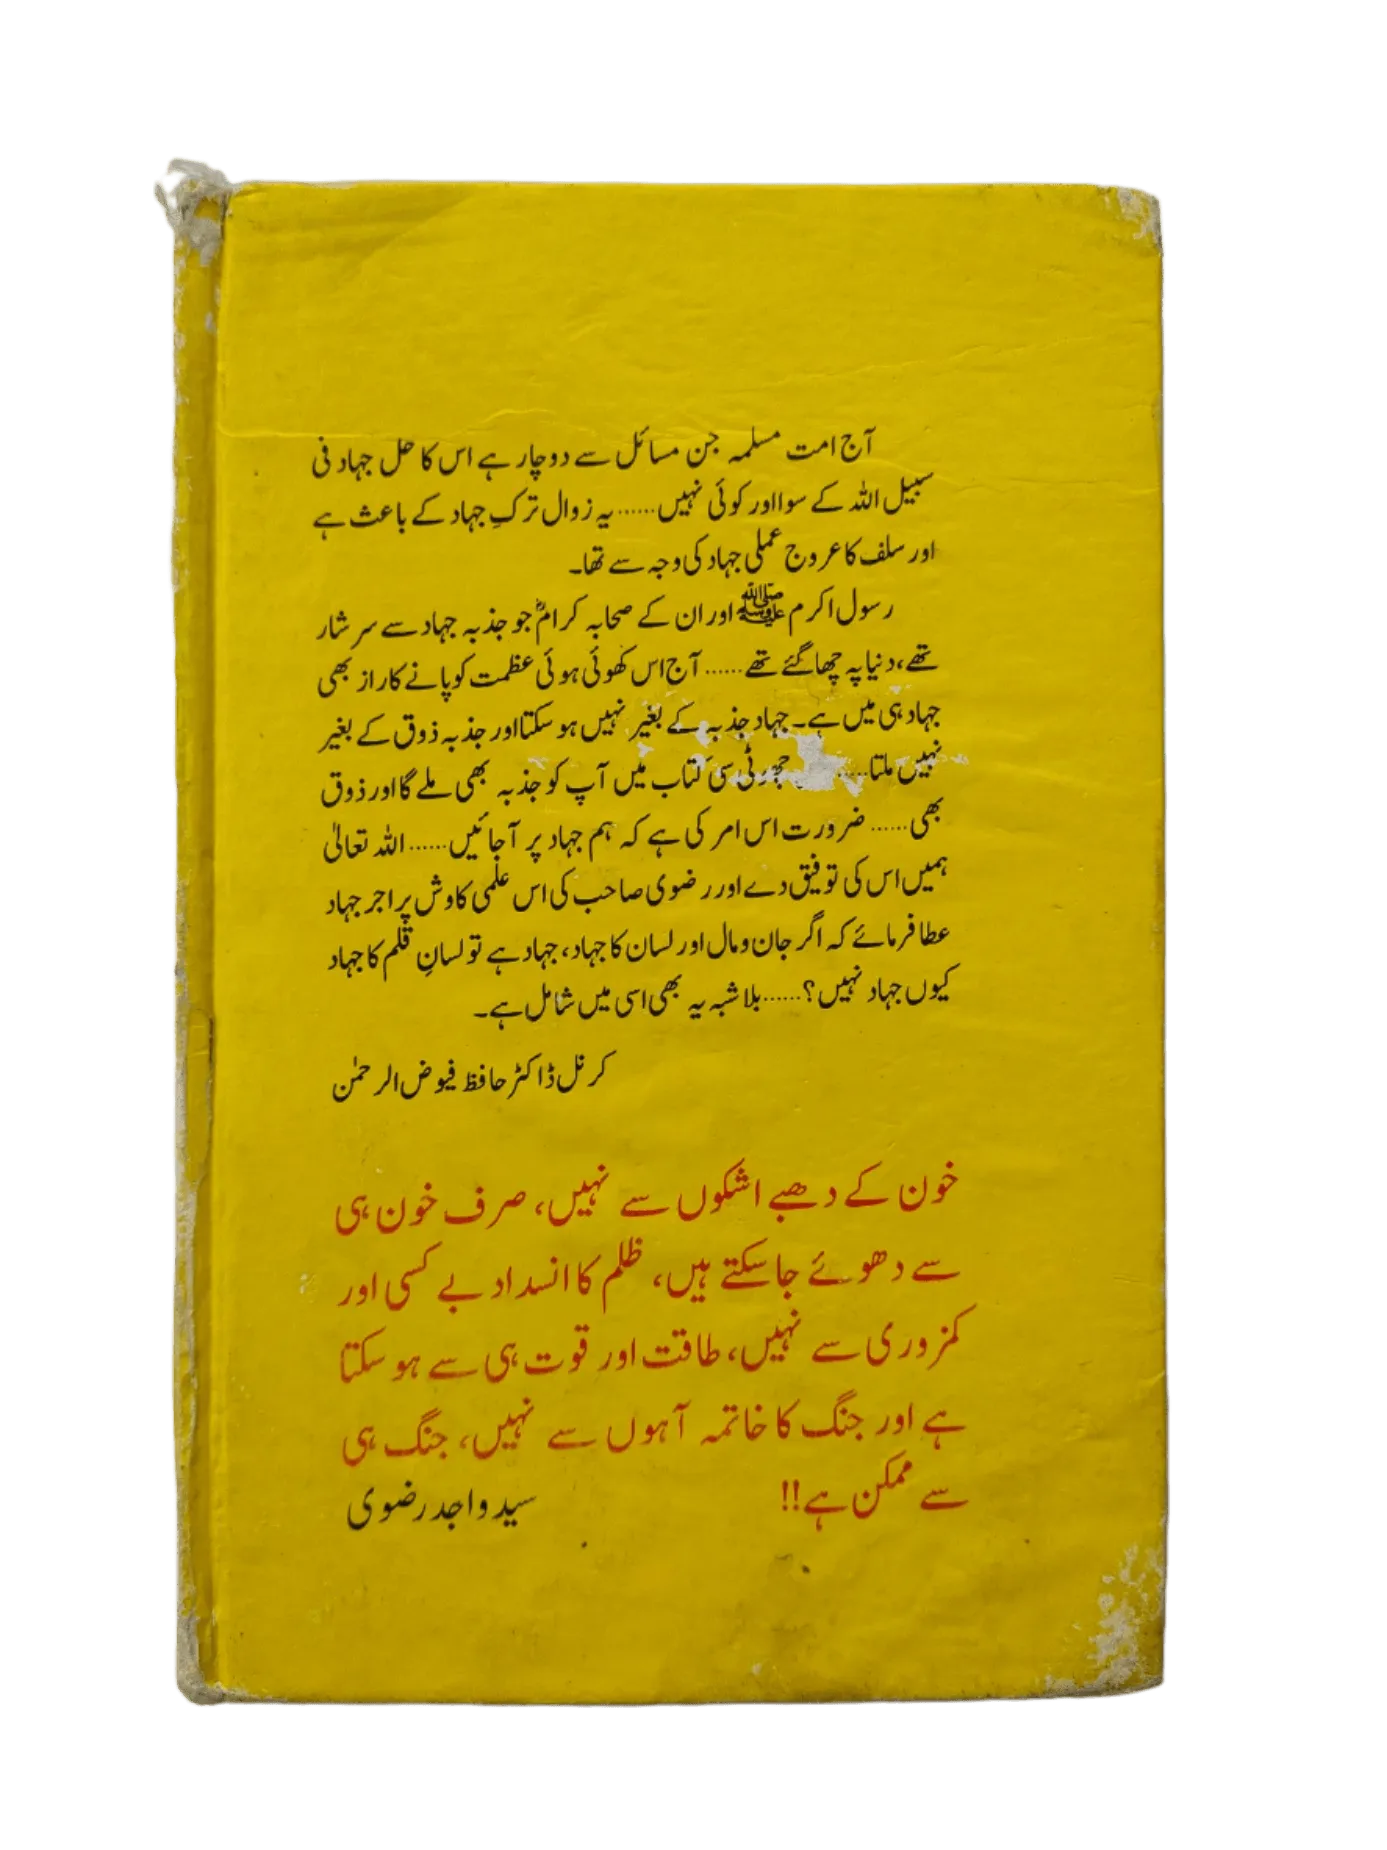 آج امت مسلمہ جن مسائل سے دوچار ہے اس کا حل جہاد فی
سبیل اللہ کے سوا اور کوئی نہیں...... یہ زوال ترکِ جہاد کے باعث ہے
اور سلف کا عروج عملی جہاد کی وجہ سے تھا۔
رسول اکرم ﷺ اور ان کے صحابہ کرامؓ جو جذبہ جہاد سے سرشار
تھے، دنیا پہ چھا گئے تھے...... آج اس کھوئی ہوئی عظمت کو پانے کا راز بھی
جہاد ہی میں ہے۔ جہاد جذبہ کے بغیر نہیں ہو سکتا اور جذبہ ذوق کے بغیر
نہیں ملتا..... چھوٹی سی کتاب میں آپ کو جذبہ بھی ملے گا اور ذوق
بھی...... ضرورت اس امر کی ہے کہ ہم جہاد پر آ جائیں...... اللہ تعالیٰ
ہمیں اس کی توفیق دے اور رضوی صاحب کی اس علمی کاوش پر اجر جہاد
عطا فرمائے کہ اگر جان و مال اور لسان کا جہاد، جہاد ہے تو لسانِ قلم کا جہاد
کیوں جہاد نہیں؟...... بلاشبہ یہ بھی اسی میں شامل ہے۔
کرنل ڈاکٹر حافظ فیوض الرحمٰن
خون کے دھبے اشکوں سے نہیں، صرف خون ہی
سے دھوئے جا سکتے ہیں، ظلم کا انسداد بے کسی اور
کمزوری سے نہیں، طاقت اور قوت ہی سے ہو سکتا
ہے اور جنگ کا خاتمہ آہوں سے نہیں، جنگ ہی
سے ممکن ہے!!
سید واجد رضوی